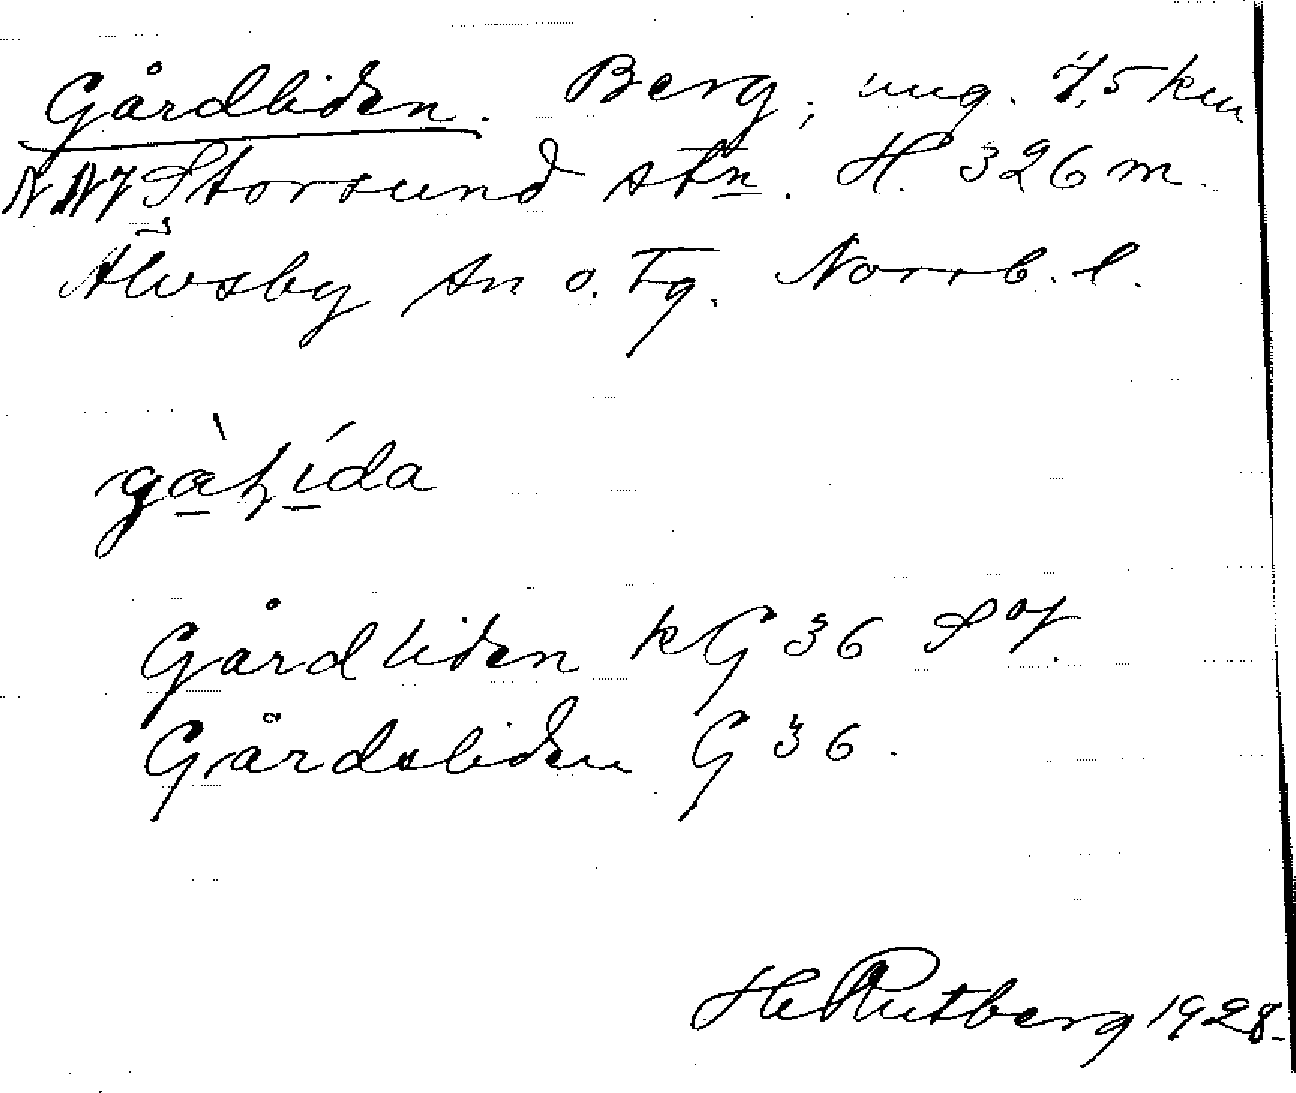 Gårdliden. Berg, ung. 7,5 km
NNV Storsund stn. H. 326 m.
Älvsby sn o. Tg. Norrb. l.
Gårdliden k G 36 SV.
Gårdsliden G 36.
H Rutberg 1928.